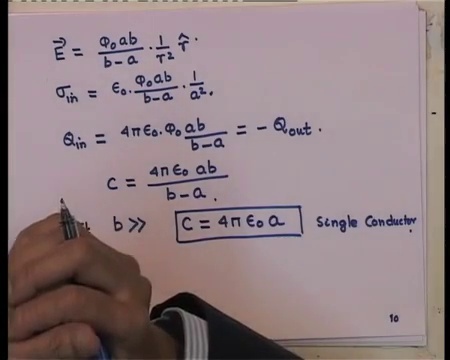 E⃗ = φ₀ab / b-a · 1/r² r̂.
σin = ε₀. φ₀ab / b-a · 1/a².
Qin = 4πε₀.φ₀ ab / b-a = - Qout.
C = 4πε₀ ab / b-a.
b >> C = 4πε₀ a Single Conductor
10